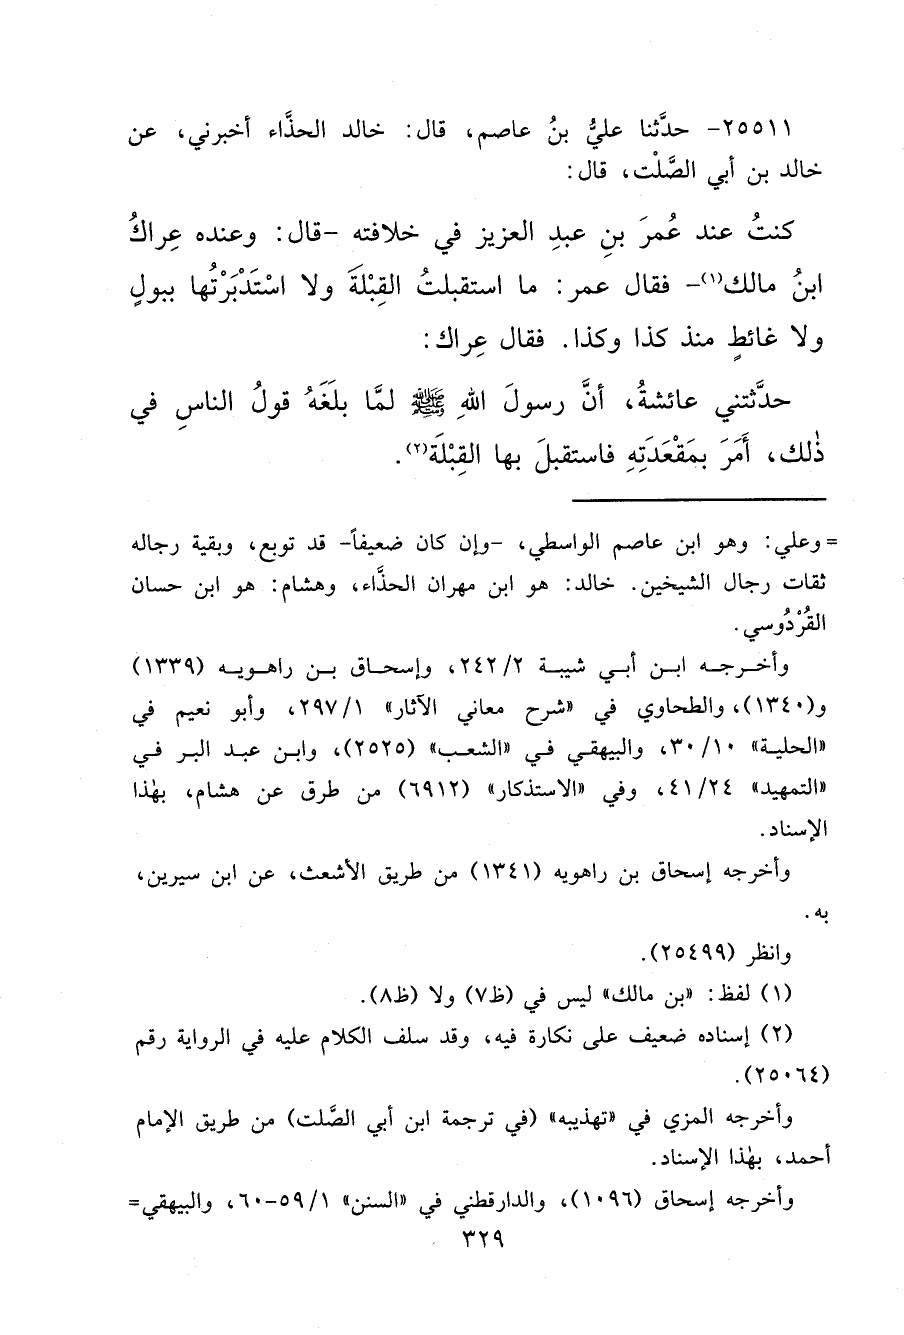 ٢٥٥١١- حدَّثنا عليُّ بنُ عاصم، قال: خالد الحذَّاء أخبرني، عن
خالد بن أبي الصَّلْت، قال:
كنتُ عند عُمرَ بنِ عبدِ العزيز في خلافته -قال: وعنده عِراكُ
ابنُ مالك(١)- فقال عمر: ما استقبلتُ القِبْلَةَ ولا اسْتَدْبَرْتُها ببولٍ
ولا غائطٍ منذ كذا وكذا. فقال عِراك:
حدَّثتني عائشةُ، أنَّ رسولَ اللهِ ﷺ لمَّا بلَغَهُ قولُ الناسِ في
ذٰلك، أَمَرَ بمَقْعَدَتِهِ فاستقبلَ بها القِبْلَةَ(٢).
= وعلي: وهو ابن عاصم الواسطي، -وإن كان ضعيفاً- قد توبع، وبقية رجاله
ثقات رجال الشيخين. خالد: هو ابن مهران الحذَّاء، وهشام: هو ابن حسان
القُرْدُوسي.
وأخرجه ابن أبي شيبة ٢٤٢/٢، وإسحاق بن راهويه (١٣٣٩)
و(١٣٤٠)، والطحاوي في «شرح معاني الآثار» ٢٩٧/١، وأبو نعيم في
«الحلية» ٣٠/١٠، والبيهقي في «الشعب» (٢٥٢٥)، وابن عبد البر في
«التمهيد» ٤١/٢٤، وفي «الاستذكار» (٦٩١٢) من طرق عن هشام، بهٰذا
الإسناد.
وأخرجه إسحاق بن راهويه (١٣٤١) من طريق الأشعث، عن ابن سيرين،
به.
وانظر (٢٥٤٩٩).
(١) لفظ: «بن مالك» ليس في (ظ٧) ولا (ظ٨).
(٢) إسناده ضعيف على نكارة فيه، وقد سلف الكلام عليه في الرواية رقم
(٢٥٠٦٤).
وأخرجه المزي في «تهذيبه» (في ترجمة ابن أبي الصَّلت) من طريق الإمام
أحمد، بهٰذا الإسناد.
وأخرجه إسحاق (١٠٩٦)، والدارقطني في «السنن» ٥٩/١-٦٠، والبيهقي=
٣٢٩